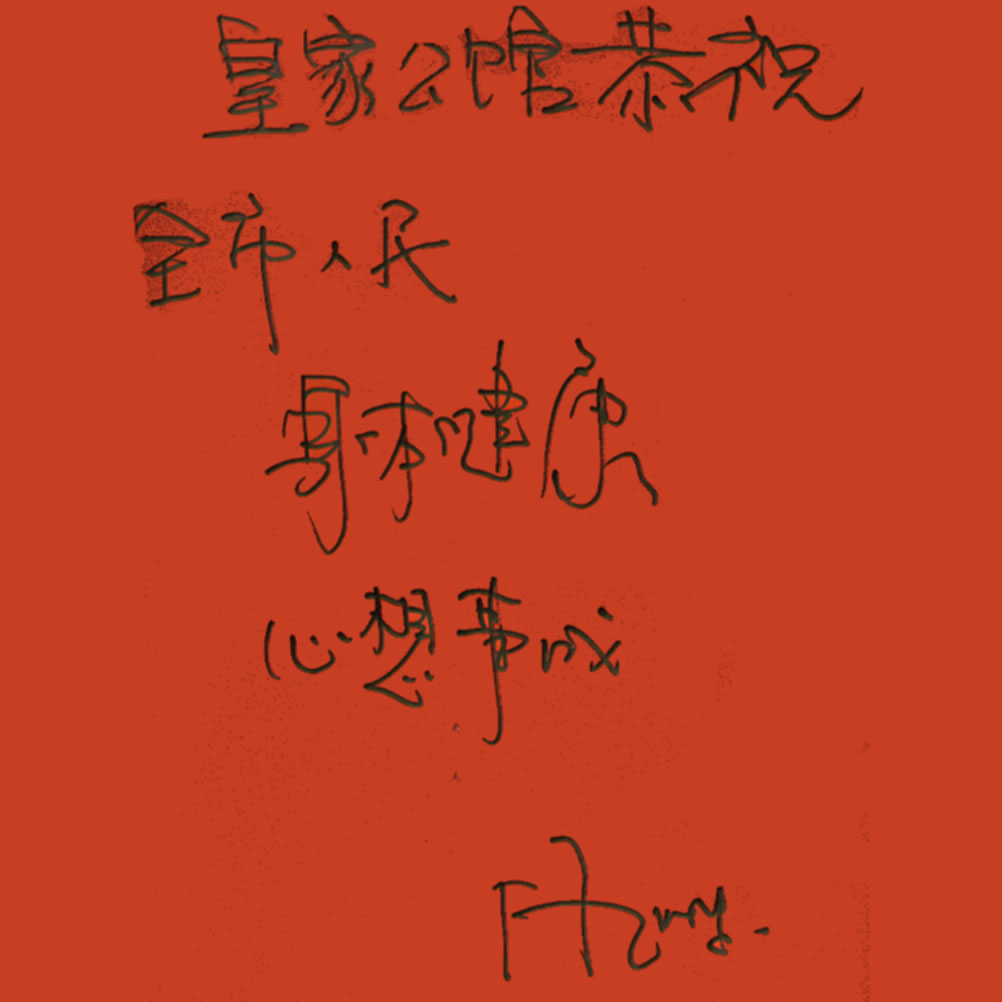 皇家公馆恭祝
全市人民
身体健康
心想事成